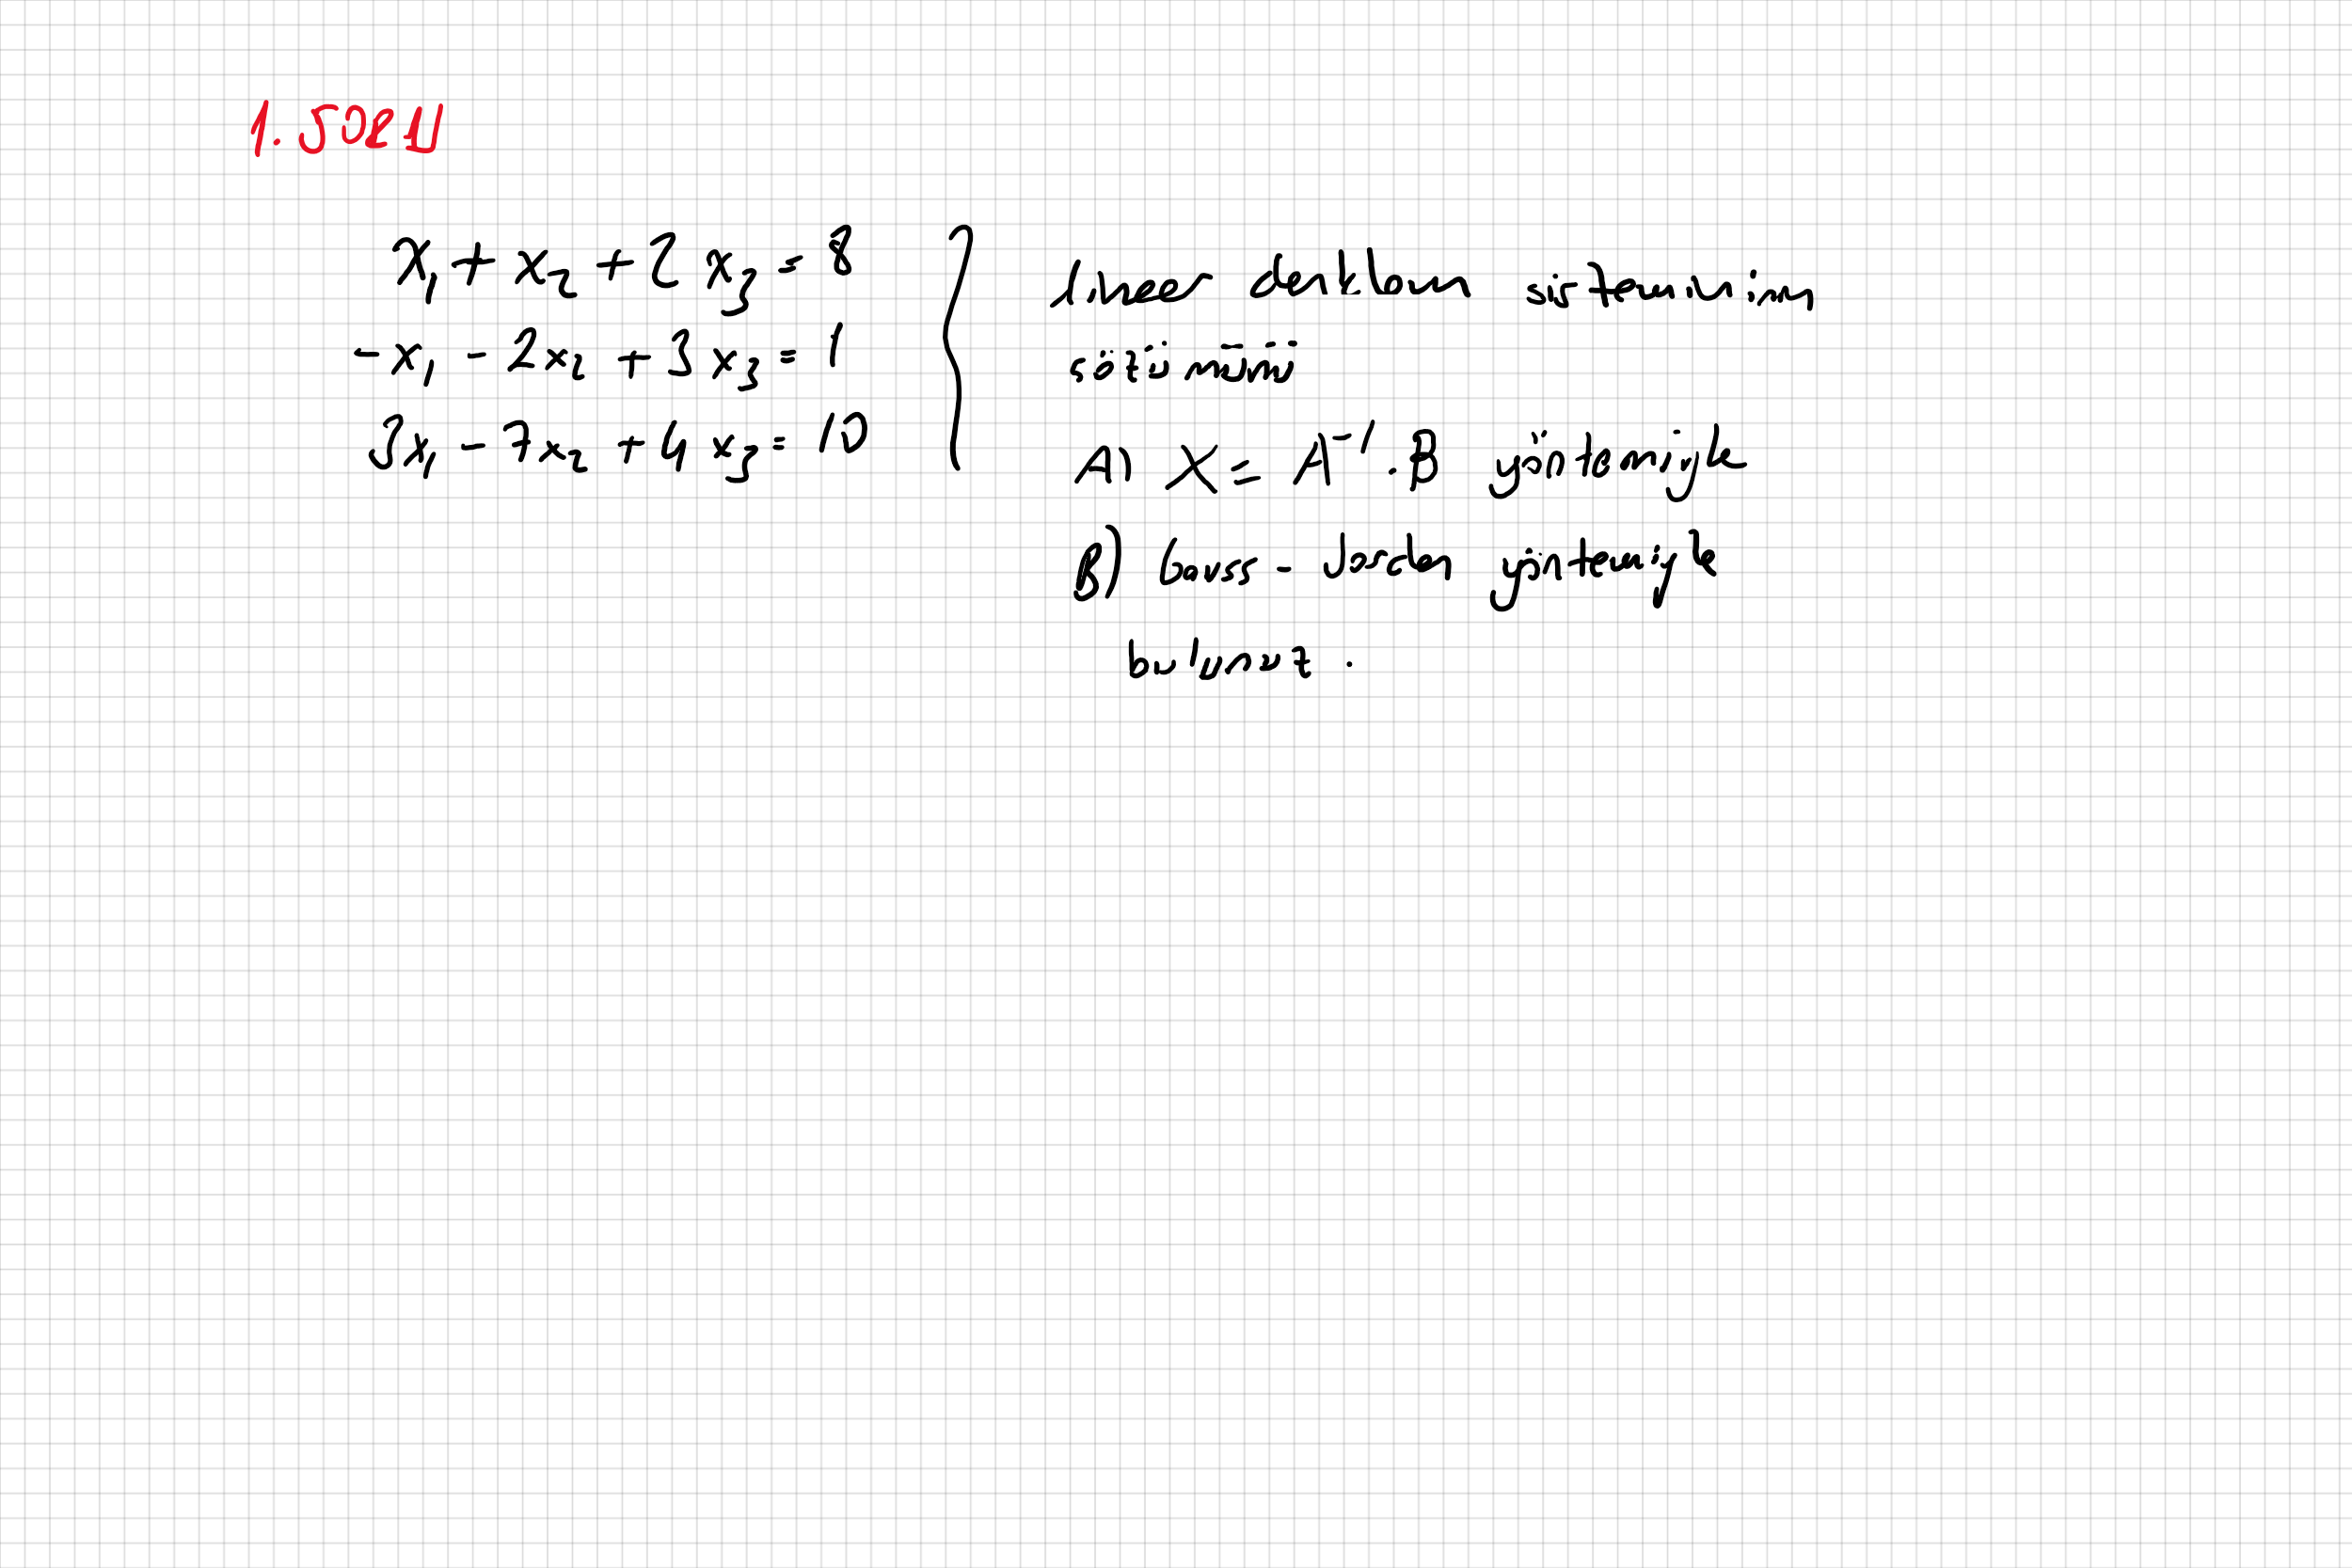 1. SORU
x₁ + x₂ + 2x₃ = 8
-x₁ - 2x₂ + 3x₃ = 1
3x₁ - 7x₂ + 4x₃ = 10
lineer denklem sisteminin
çözümünü
A) X = A⁻¹ . B yöntemiyle
B) Gauss - Jordan yöntemiyle
bulunuz .